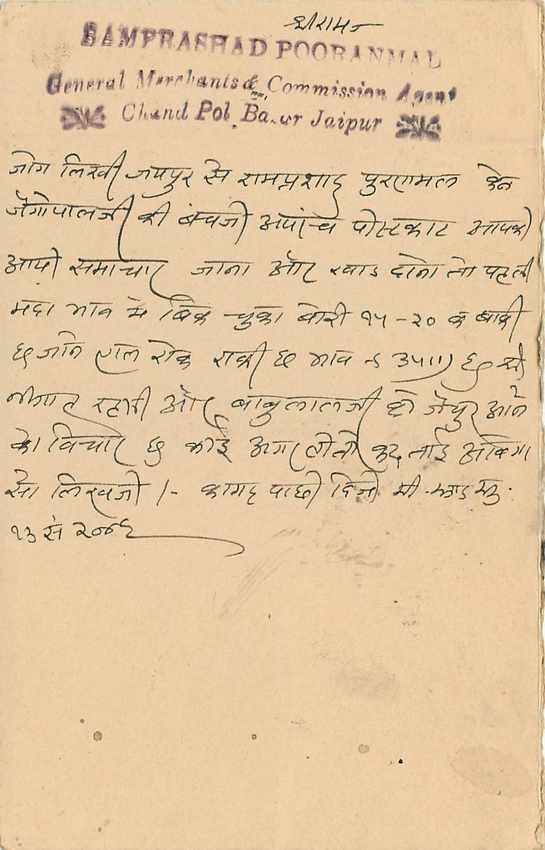 श्रीरामजी
RAMPRASHAD POORANMAL
General Merchants & Commission Agent
Chand Pol Bazar Jaipur
जोग लिखी जयपुर से रामप्रशाद पुरणमल केन
जैगोपालजी की बंचजो अपरंच पोस्टकाट आपको
आयो समाचार जाना और खाड दोना तो पहली
मदा भाव में बिक चुका बोरी १५-२० क बाकी
छ जीन हाल रोक राखी छ भाव ३५॥) छ सो
और बाबुलालजी को जैपुर आने
का विचार छ कोई
सो लिखजो /- कागद पाछो दिजो मी
१३ सं २००६